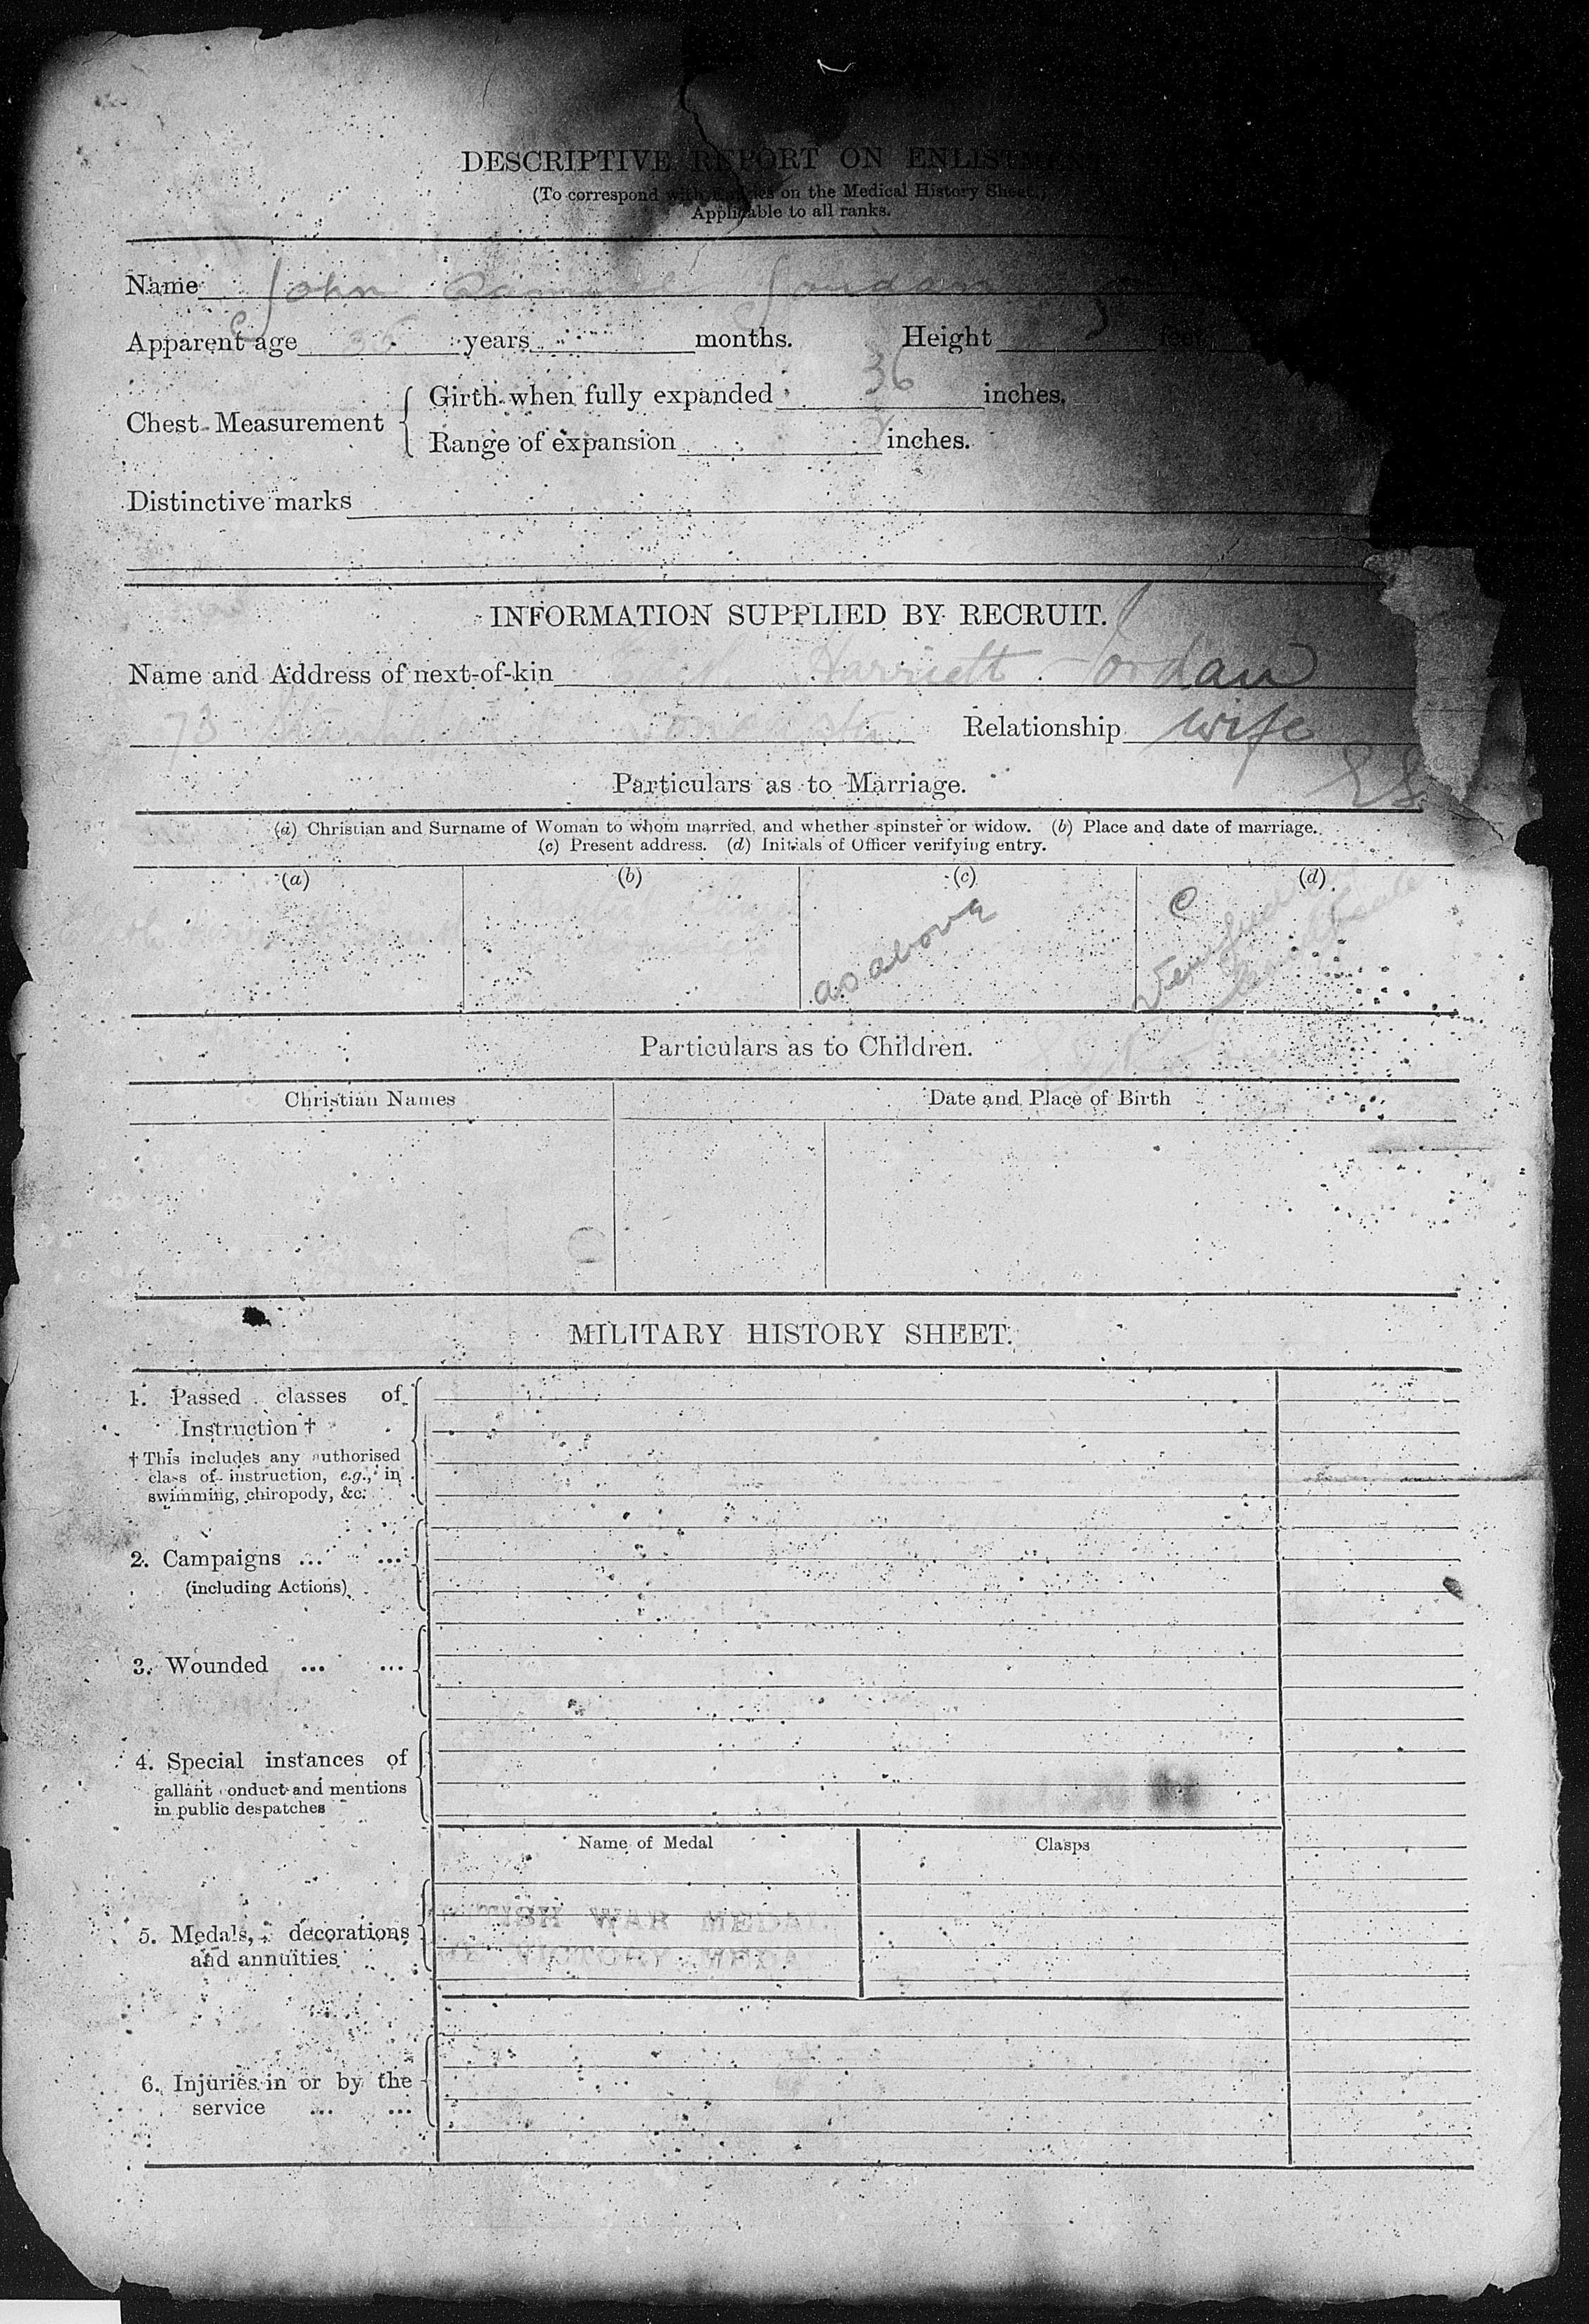 DESCRIPTIVE REPORT ON ENLISTMENT
(To correspond with Entries on the Medical History Sheet.)
Applicable to all ranks.
Name John Samuel Jordan
Apparent age 36 years months. Height 5 feet
Chest Measurement { Girth when fully expanded 36 inches.
Range of expansion inches.
Distinctive marks
INFORMATION SUPPLIED BY RECRUIT.
Name and Address of next-of-kin Harriett Jordan
73 Doncaster Relationship wife
Particulars as to Marriage.
(a) Christian and Surname of Woman to whom married, and whether spinster or widow. (b) Place and date of marriage.
(c) Present address. (d) Initials of Officer verifying entry.
(a) (b) (c) (d)
as above Verified
Particulars as to Children.
Christian Names Date and Place of Birth
MILITARY HISTORY SHEET.
1. Passed classes of
Instruction †
† This includes any authorised
class of instruction, e.g., in
swimming, chiropody, &c.
2. Campaigns ... ...
(including Actions)
3. Wounded ... ...
4. Special instances of
gallant onduct and mentions
in public despatches
Name of Medal Clasps
5. Medals, decorations
and annuities
TISH WAR MEDAL
VICTORY MEDA
6. Injuries in or by the
service ... ...